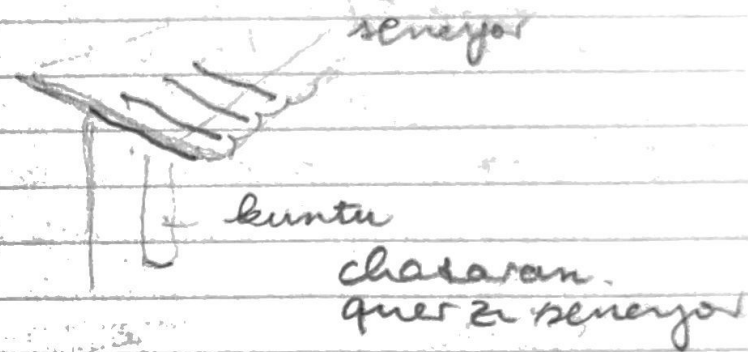 seneyor
kuntu
chasaran.
quer zu seneyor